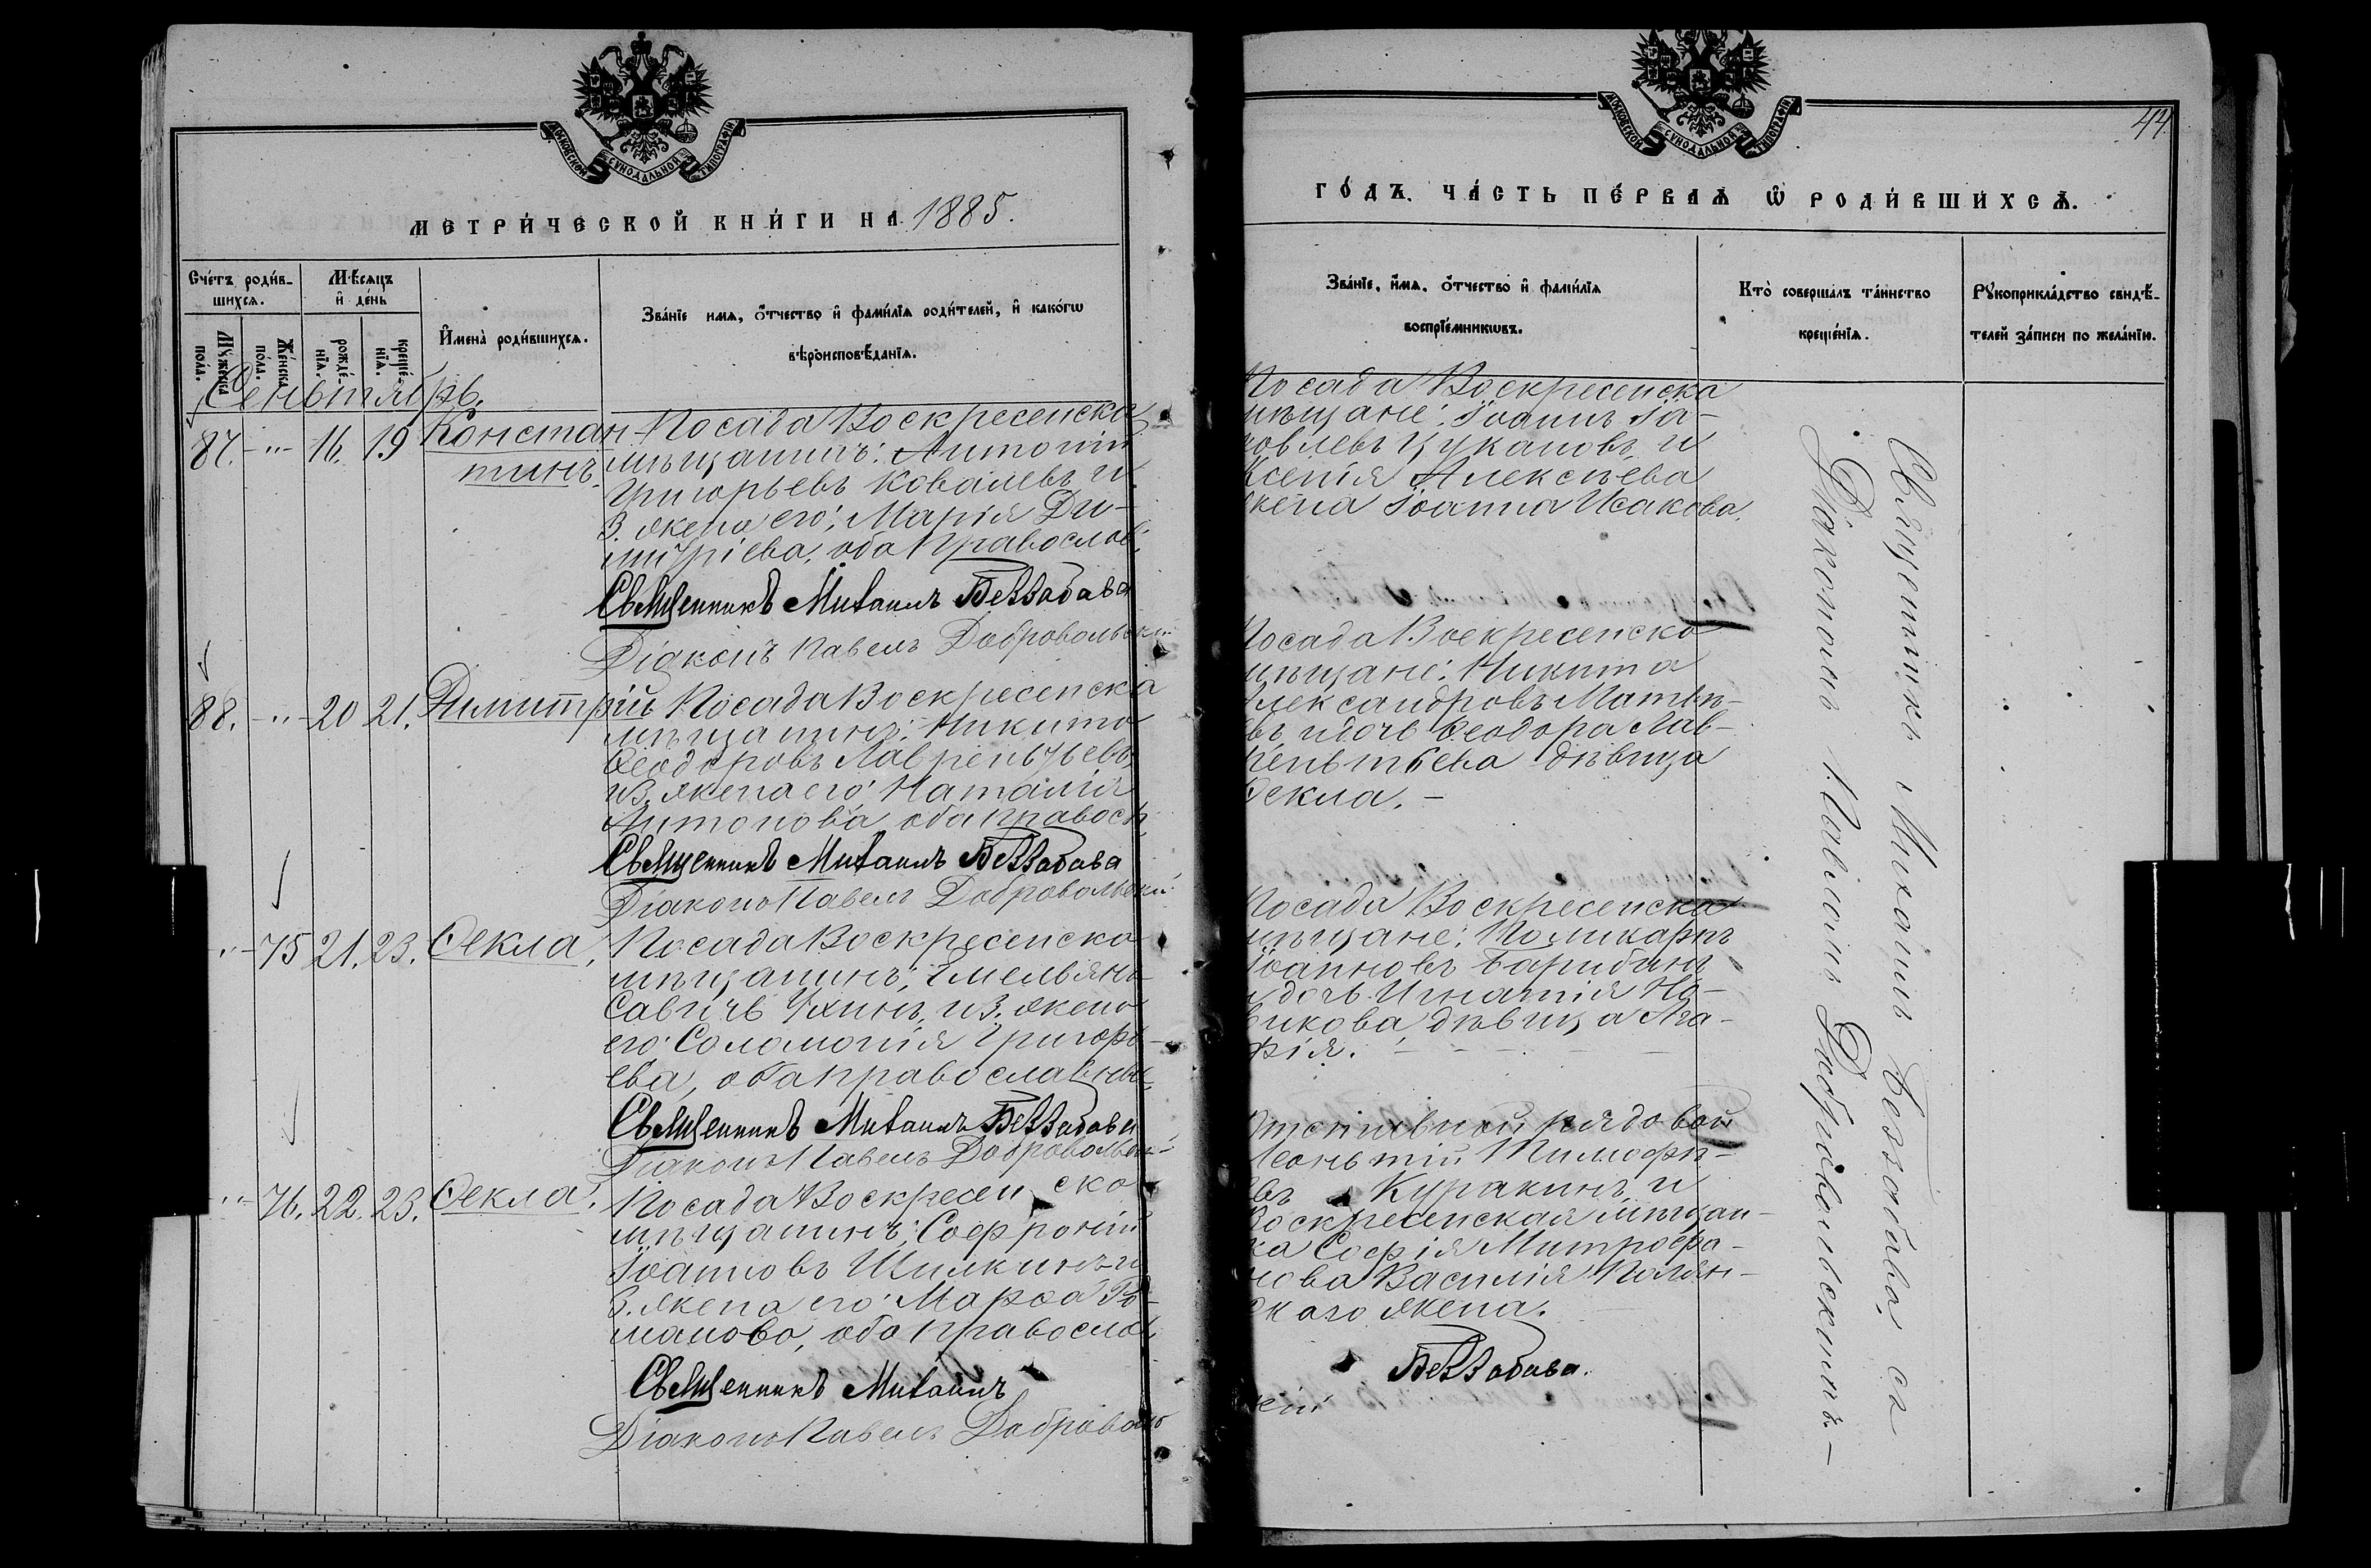 МОСКОВСКОЙ СУНОДАЛЬНОЙ ТИПОГРАФІИ
МЕТРИ́ЧЕСКОЙ КНИ́ГИ НА 1885.
Сче́тъ роди́в-
шихся.
Мѣ́сяцъ
и҆ де́нь
Мꙋ́жеска
по́ла.
Же́нска
по́ла.
рожде́-
нїя.
креще́-
нїя.
И҆мена̀ роди́вшихся.
Зва́нїе имя, ѻ҆́тчество и҆ фами́лїя роди́телей, и҆ како́гѡ
вѣроисповѣ́данїя.
Сеньтябрь.
87. -"- 16. 19 Констан-
тинъ.
Посада Воскресенска
мѣщанинъ: Антоній
Григорьевъ Ковалевъ и
з. жена его: Марія Ди-
митріева, оба православ.
Священникъ Михаилъ Беззабава
Діаконъ Павелъ Добровольскій
88. -"- 20 21. Димитрій
Посада Воскресенска
мѣщанинъ: Никита
Ѳеодоровъ Лаврентьевъ
и з. жена его: Наталія
Антонова оба правосл.
Священникъ Михаилъ Беззабава
Діаконъ Павелъ Добровольскій
-"- 75 21. 23. Ѳекла,
Посада Воскресенска
мѣщанинъ: Емельянъ
Савичъ Ухинъ, и з. жена
его: Соломонія Григорь-
ева, оба православны.
Священникъ Михаилъ Беззабава
Діаконъ Павелъ Добровольскій
-"- 76. 22. 23. Ѳекла.
Посада Воскресенска
мѣщанинъ: Софроній
Іоанновъ Шилкинъ и
з. жена его: Марѳа Ро-
манова, оба православ.
Священникъ Михаилъ
Діаконъ Павелъ Доброволь
МОСКОВСКОЙ СУНОДАЛЬНОЙ ТИПОГРАФІИ
44
ГО́ДЪ. ЧА́СТЬ ПЕ́РВАЯ Ѡ РОДИ́ВШИХСЯ.
Зва́нїе, и҆́мя, ѻ҆́тчество и҆ фами́лїя
воспрїе́мникѡвъ.
Кто̀ соверша́лъ та́инство
креще́нїя.
Рꙋкоприкла́дство свидѣ́-
телей за́писи по жела́нїю.
Посада Воскресенска
мѣщане: Іоаннъ Іа-
ковлевъ Цукановъ и
Ксенія Алексѣева
жена Іоанна Исакова.
Посада Воскресенска
мѣщане: Никита
Александровъ Матвѣ-
евъ и дочь Ѳеодора Лав-
реньтьева дѣвица
Ѳекла. -
Посада Воскресенска
мѣщане: Поликарпъ
Іоанновъ Барибинъ
и дочь Игнатія Но-
викова дѣвица Ага-
фія. -
Отставной рядовой
Леоньтій Тимофѣ-
евъ Куракинъ и
Воскресенская мѣщан-
ка Софія Митрофа-
нова Василія Полян-
скаго жена.
Беззабава.
скій
Священникъ Михаилъ Беззабава, съ
Діакономъ Павломъ Добровольскимъ. -